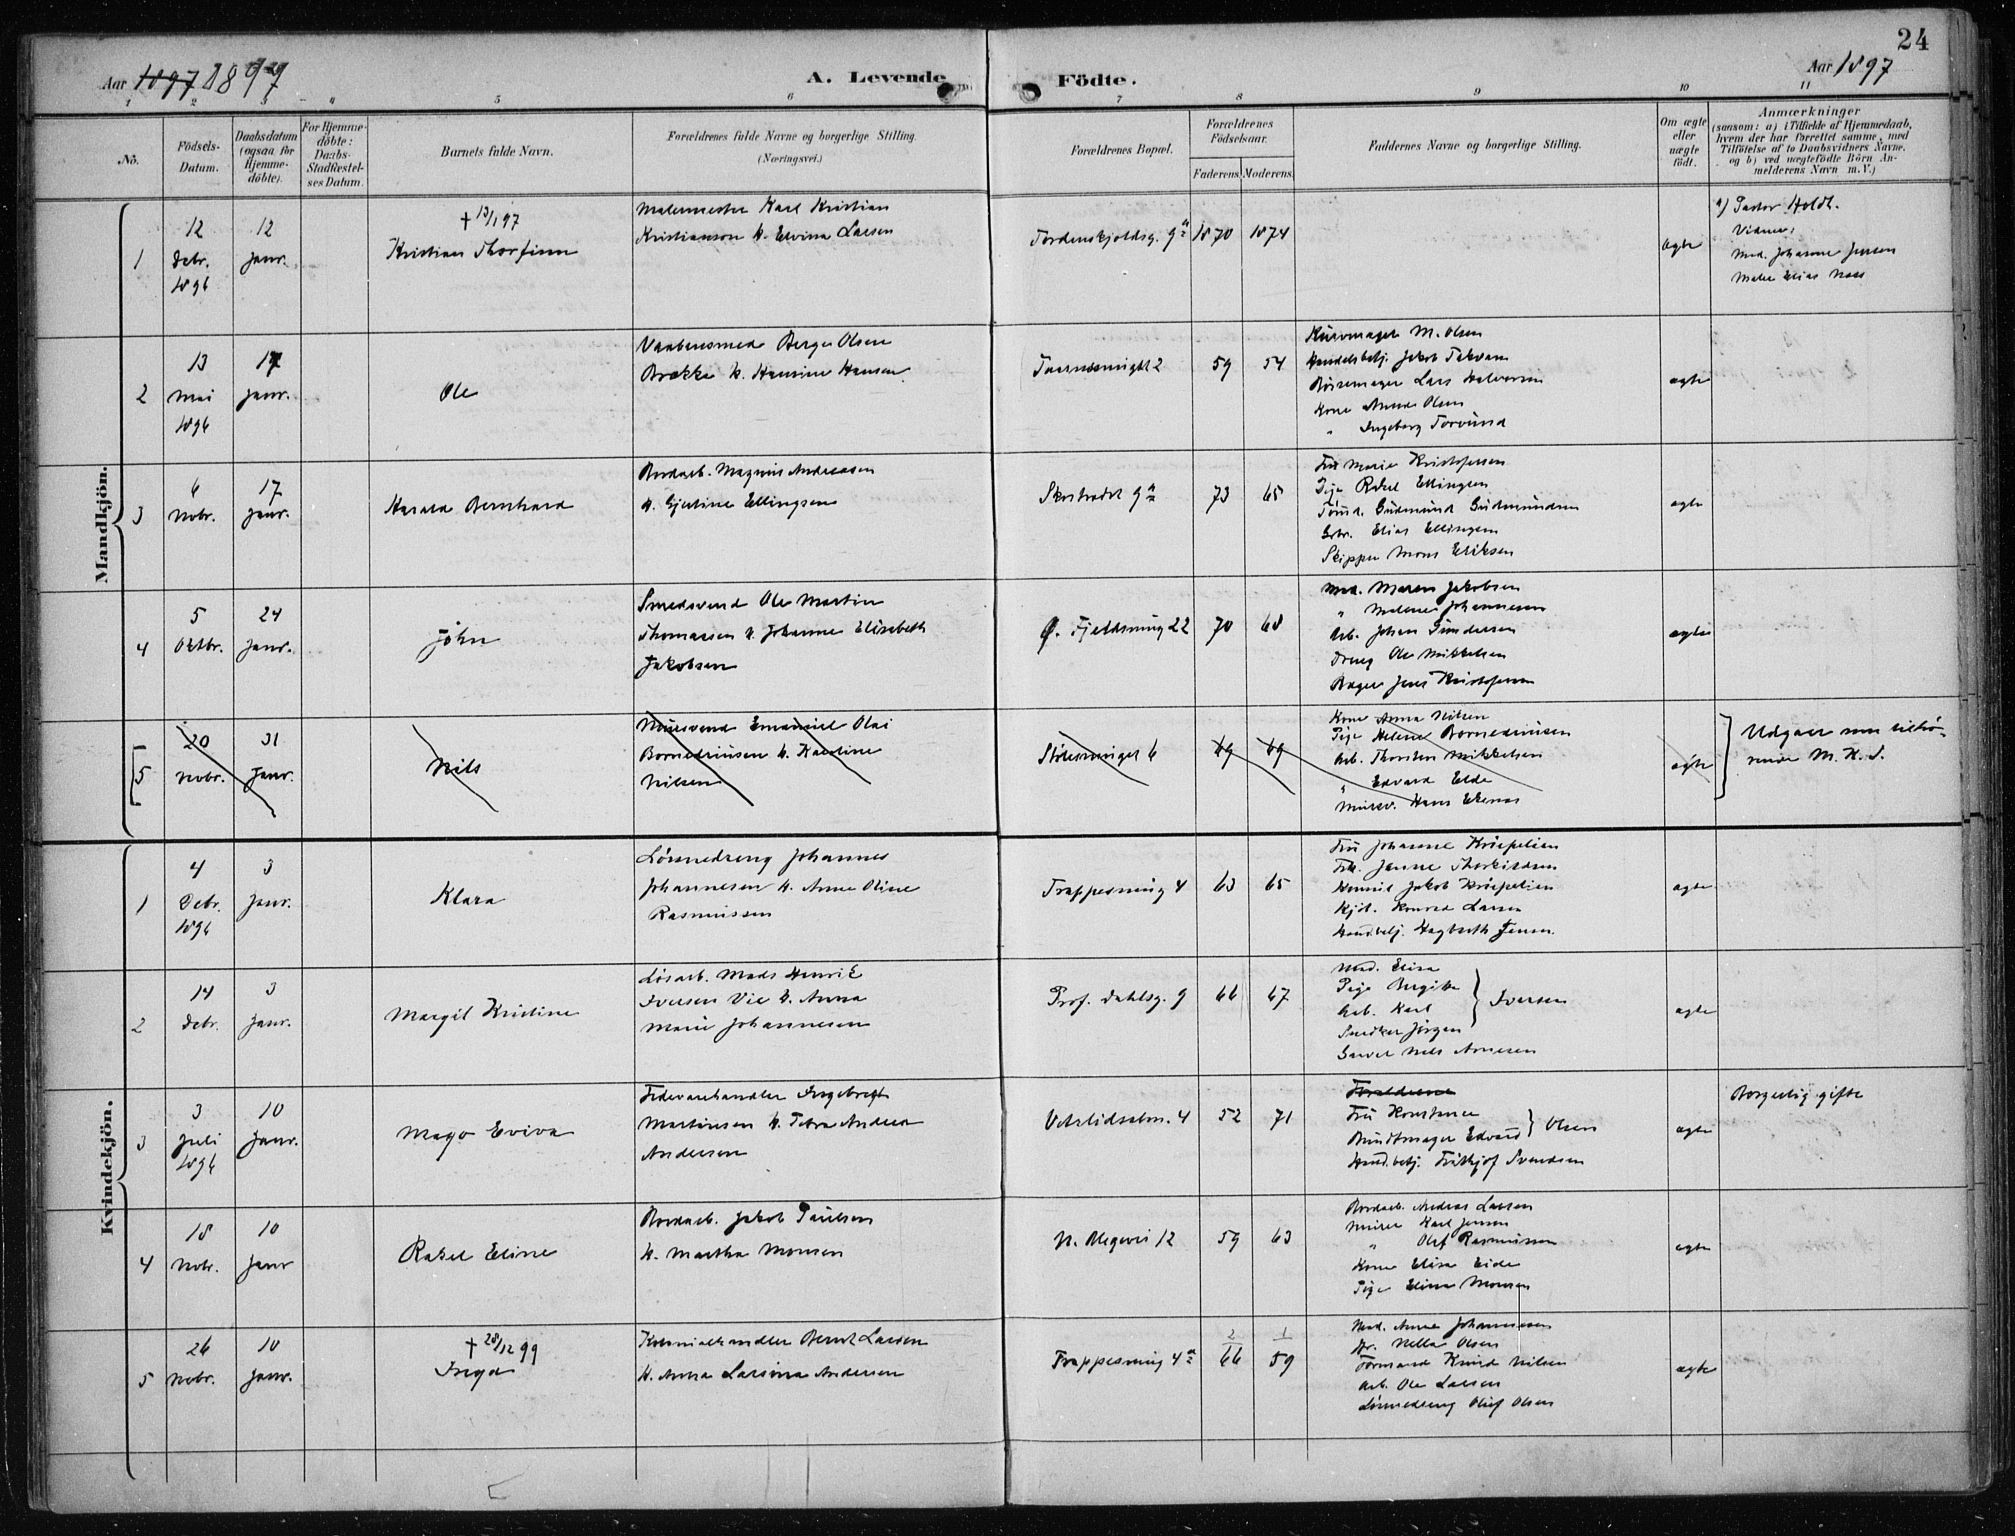 24
Aar 1897 1897
A. Levende Födte.
Aar 1897
1 2 3 4 5 6 7 8 9 10 11
No.
Födsels-
Datum.
Daabsdatum
(ogsaa for
Hjemme-
döbte).
For Hjemme-
döbte:
Daabs-
Stadfæstel-
ses Datum.
Barnets fulde Navn.
Forældrenes fulde Navne og borgerlige Stilling.
(Næringsvei.)
Forældrenes Bopæl.
Forældrenes
Födselsaar.
Faderens. Moderens.
Faddernes Navne og borgerlige Stilling.
Om ægte
eller
uægte
födt.
Anmærkninger
(saasom: a) i Tilfælde af Hjemmedaab,
hvem der har forrettet samme, med
Tilföielse af to Daabsvidners Navne.
og b) ved uægtefödte Börn An-
melderens Navn m. V.)
Mandkjön.
1
12
Debr.
1896
12
Janr.
+ 13/1 97
Kristian Thorfinn
Malermester Karl Kristian
Kristianson H. Elvina Larsen
Tordenskjoldsg. 9a
1870 1874
ægte
a) Pastor Holdt.
Vidner:
Mad. Johanne Jensen
Maler Elias Næss
2
13
Mai
1896
17
Janr.
Ole
Vaabensmed Berge Olsen
Brække H. Hansine Hansen
2
59 54
Kurvmager M. Olsen
Handelsbetj. Jakob Takvam
Börsemager Lars Halvorsen
Kone Anna Olsen
" Ingeborg Torvund
ægte
3
6
Novbr.
17
Janr.
Harald Bernhard
Bordarb. Magnus Andreasen
H. Gjertine Ellingsen
Skostrædet 9a
73 65
Fru Marie Kristofersen
Pige Rakel Ellingsen
Tömd. Gudmund Gudmundsen
Elias Ellingsen
Skipper Mons Eriksen
ægte
4
5
Oktbr.
24
Janr.
John
Smedsvend Ole Martin
Thomassen H. Johanne Elisabeth
Jakobsen
Ø. Fjeldsmug 22
70 68
Mad. Maren Jakobsen
" Malene Johannesen
Arb. Johan Gundersen
Dreng Ole Mikkelsen
Bager Jens Kristofersen
ægte
5
20
Novbr.
31
Janr.
Nils
Mursvend Emanuel Olai
Bornedinusen H. Karoline
Nilsen
Stölesmuget 6
69 69
Kone Anna Nilsen
Pige Helene Bornedinusen
Arb. Thorsten Mikkelsen
" Edvard Elde
Mursv. Hans Ekenæs
ægte
Udgaar som tilhö-
rende M. K. S.
Kvindekjön.
1
4
Debr.
1896
3
Janr.
Klara
Lönnedreng Johannes
Johannesen H. Anna Oline
Rasmussen
Trappesmug 4
63 65
Fru Johanne Krüpelien
Frk. Janne Thorkildsen
Jakob Krüpelien
Kjöb. Konrad Larsen
Handbetj. Hagbarth Jensen.
ægte
2
14
Debr.
3
Janr.
Margit Kristine
Lösarb. Mads Henrik
Iversen Vie H. Anna
Marie Johannesen
Prof. Dahlsg. 9
66 67
Mad. Elisa
Pige Birgitte
Arb. Karl
Snedker Jörgen
Iversen
Garver Nils Arnesen
ægte
3
3
Juli
1896
10
Janr.
Mago Eviva
Fedevarehandler Ingebregt
Martinsen H. Petra Andrea
Andersen
Vetrlidsalm. 4
52 71
Forældrene
Fru Konstance
Bundtmager Edvard
Olsen
Handbetj. Frithjof Svendsen
ægte
Borgerlig gifte
4
18
Novbr.
10
Janr
Rakel Eline
Bordarb. Jakob Paulsen
H. Martha Monsen
N. Blegevei 12
59 63
Bordarb. Andreas Larsen
Murer Karl Jensen
" Olaf Rasmussen
Kone Elisa Eide
Pige Elina Monsen
ægte
5
26
Novbr.
10
Janr.
+ 28/12 99
Inga
Kolonialhandler Bernt Larsen
H. Anna Larsina Andersen
Trappesmug 4a
2/66 1/59
Mad. Anna Johannessen
Fr. Nella Olsen
Formand Knud Nilsen
Arb. Ole Larsen
Lönnedreng Oluf Olsen
ægte